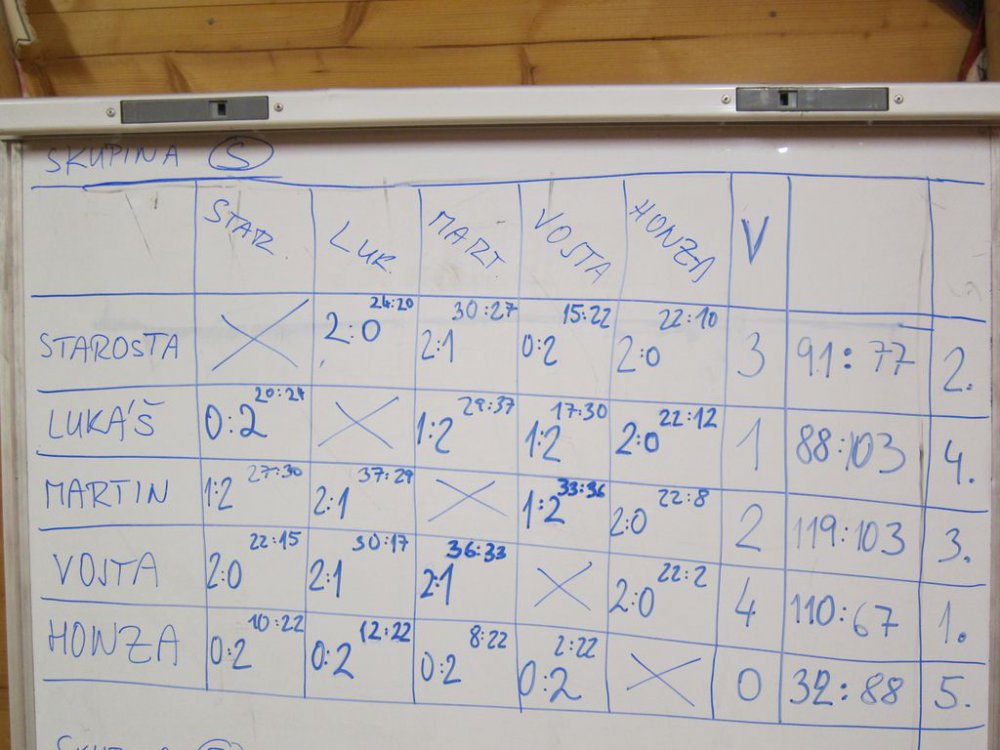 SKUPINA S
STAR LUK MART. VOJTA HONZA V
STAROSTA 2:0 24:20 2:1 30:27 0:2 15:22 2:0 22:10 3 91:77 2.
LUKÁŠ 0:2 20:24 1:2 29:37 1:2 17:30 2:0 22:12 1 88:103 4.
MARTIN 1:2 27:30 2:1 37:29 1:2 33:36 2:0 22:8 2 119:103 3.
VOJTA 2:0 22:15 2:1 30:17 2:1 36:33 2:0 22:2 4 110:67 1.
HONZA 0:2 10:22 0:2 12:22 0:2 8:22 0:2 2:22 0 32:88 5.